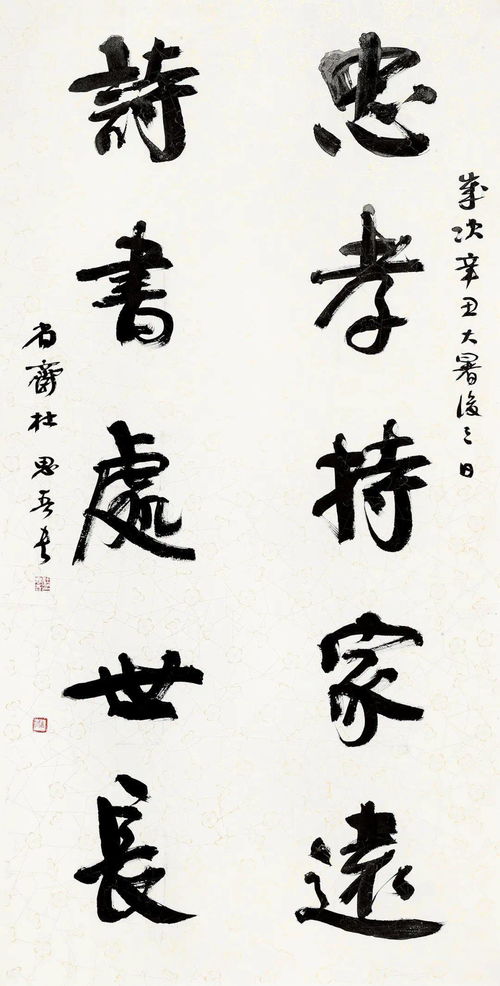 歲次辛丑大暑後三日
忠孝持家遠
詩書處世長
齋杜思吾書